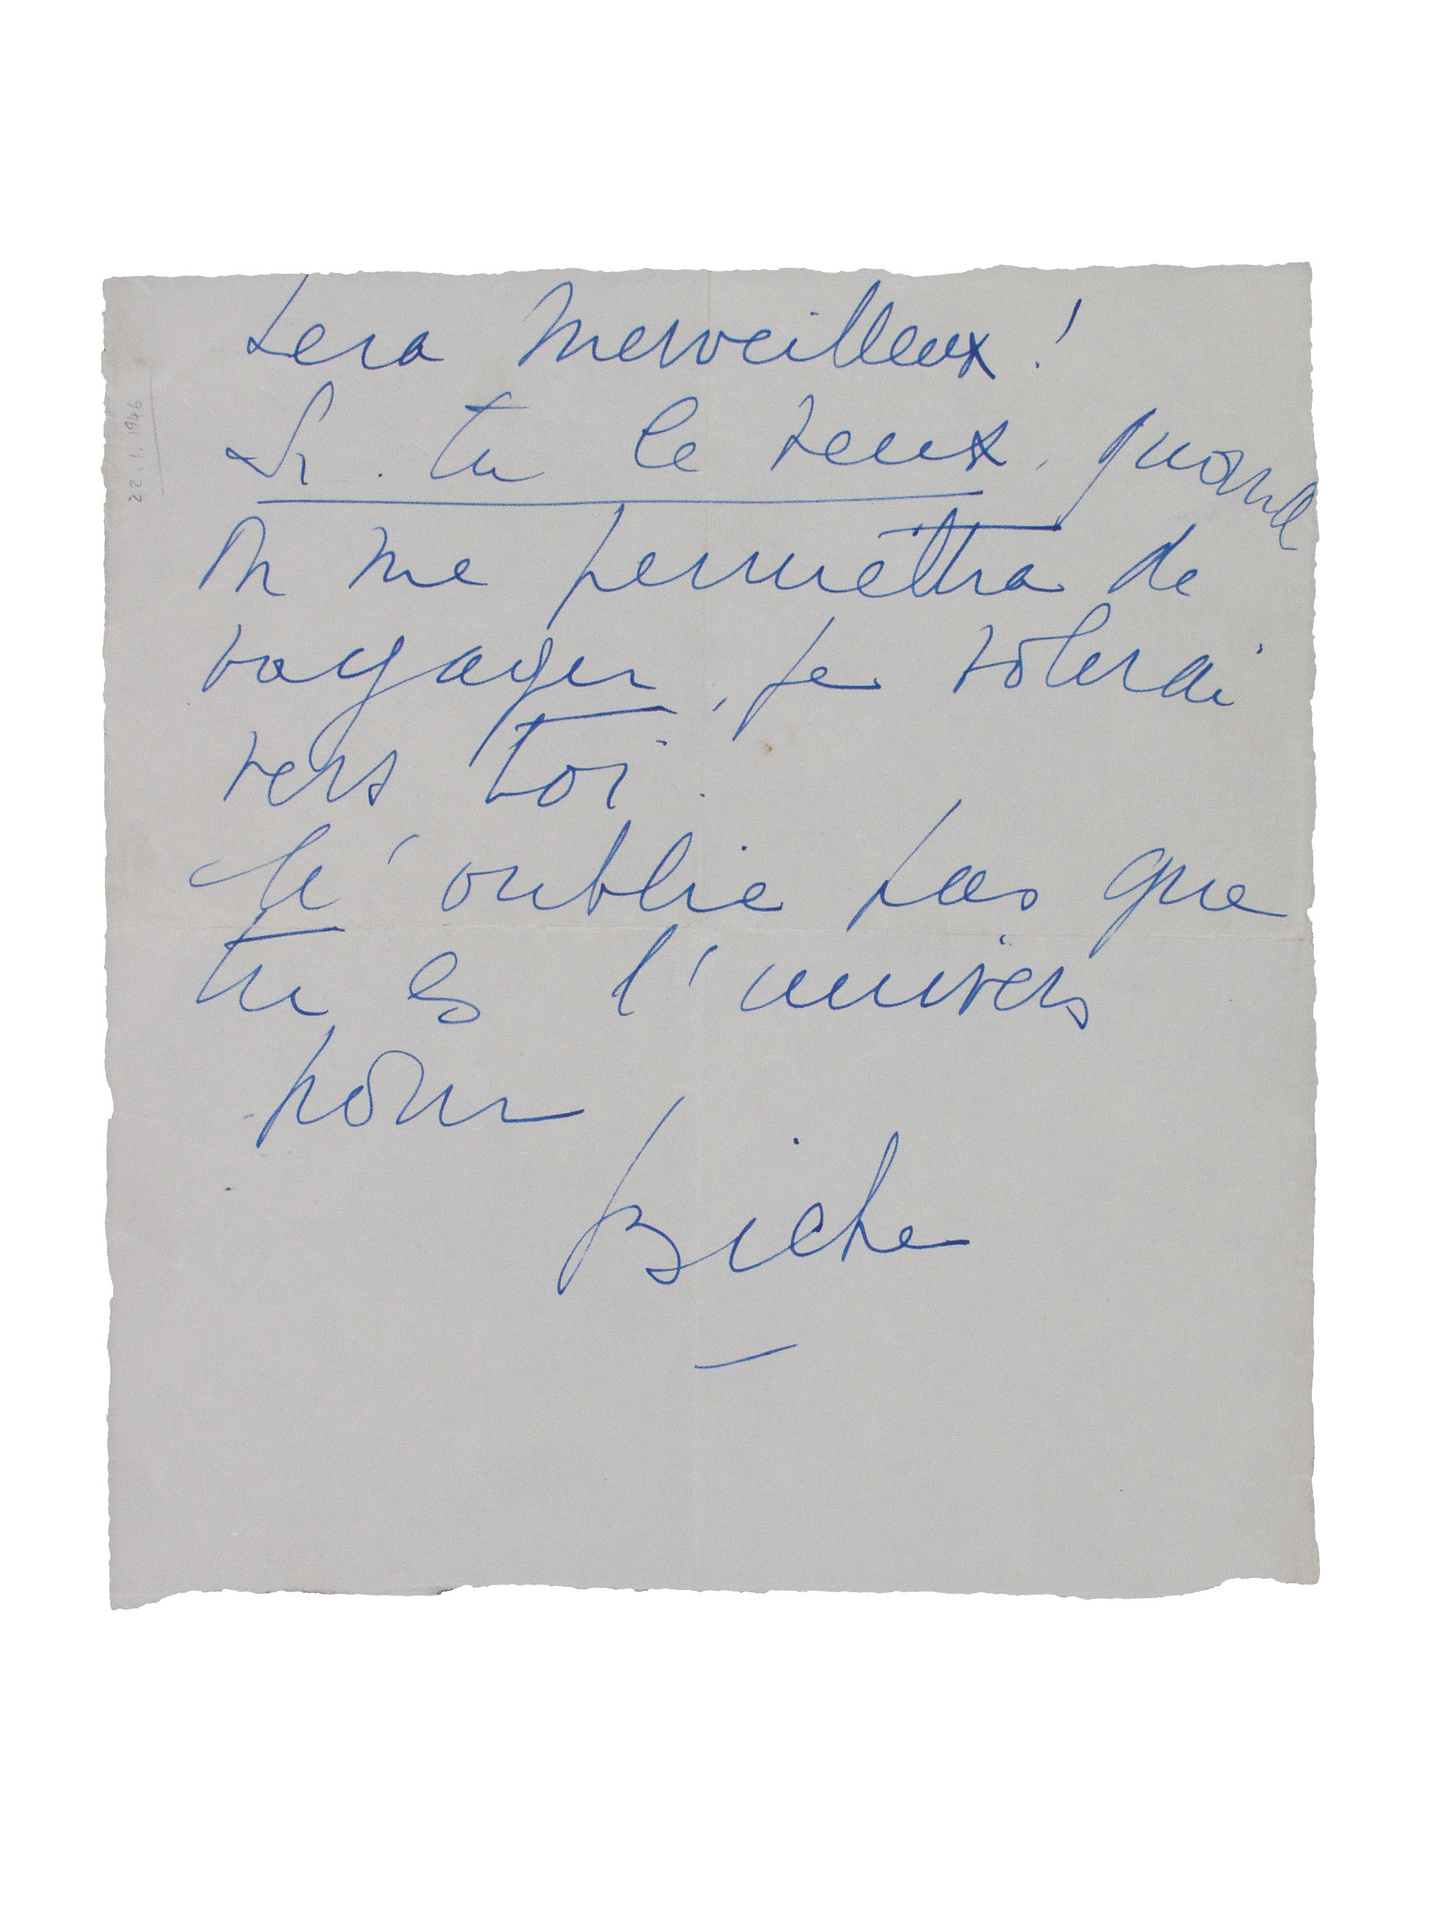 sera merveilleux !
Si tu le veux, quand
on me permettra de
voyager, je volerai
vers toi.
N'oublie pas que
tu es l'univers
pour
Biche
22.1.1946